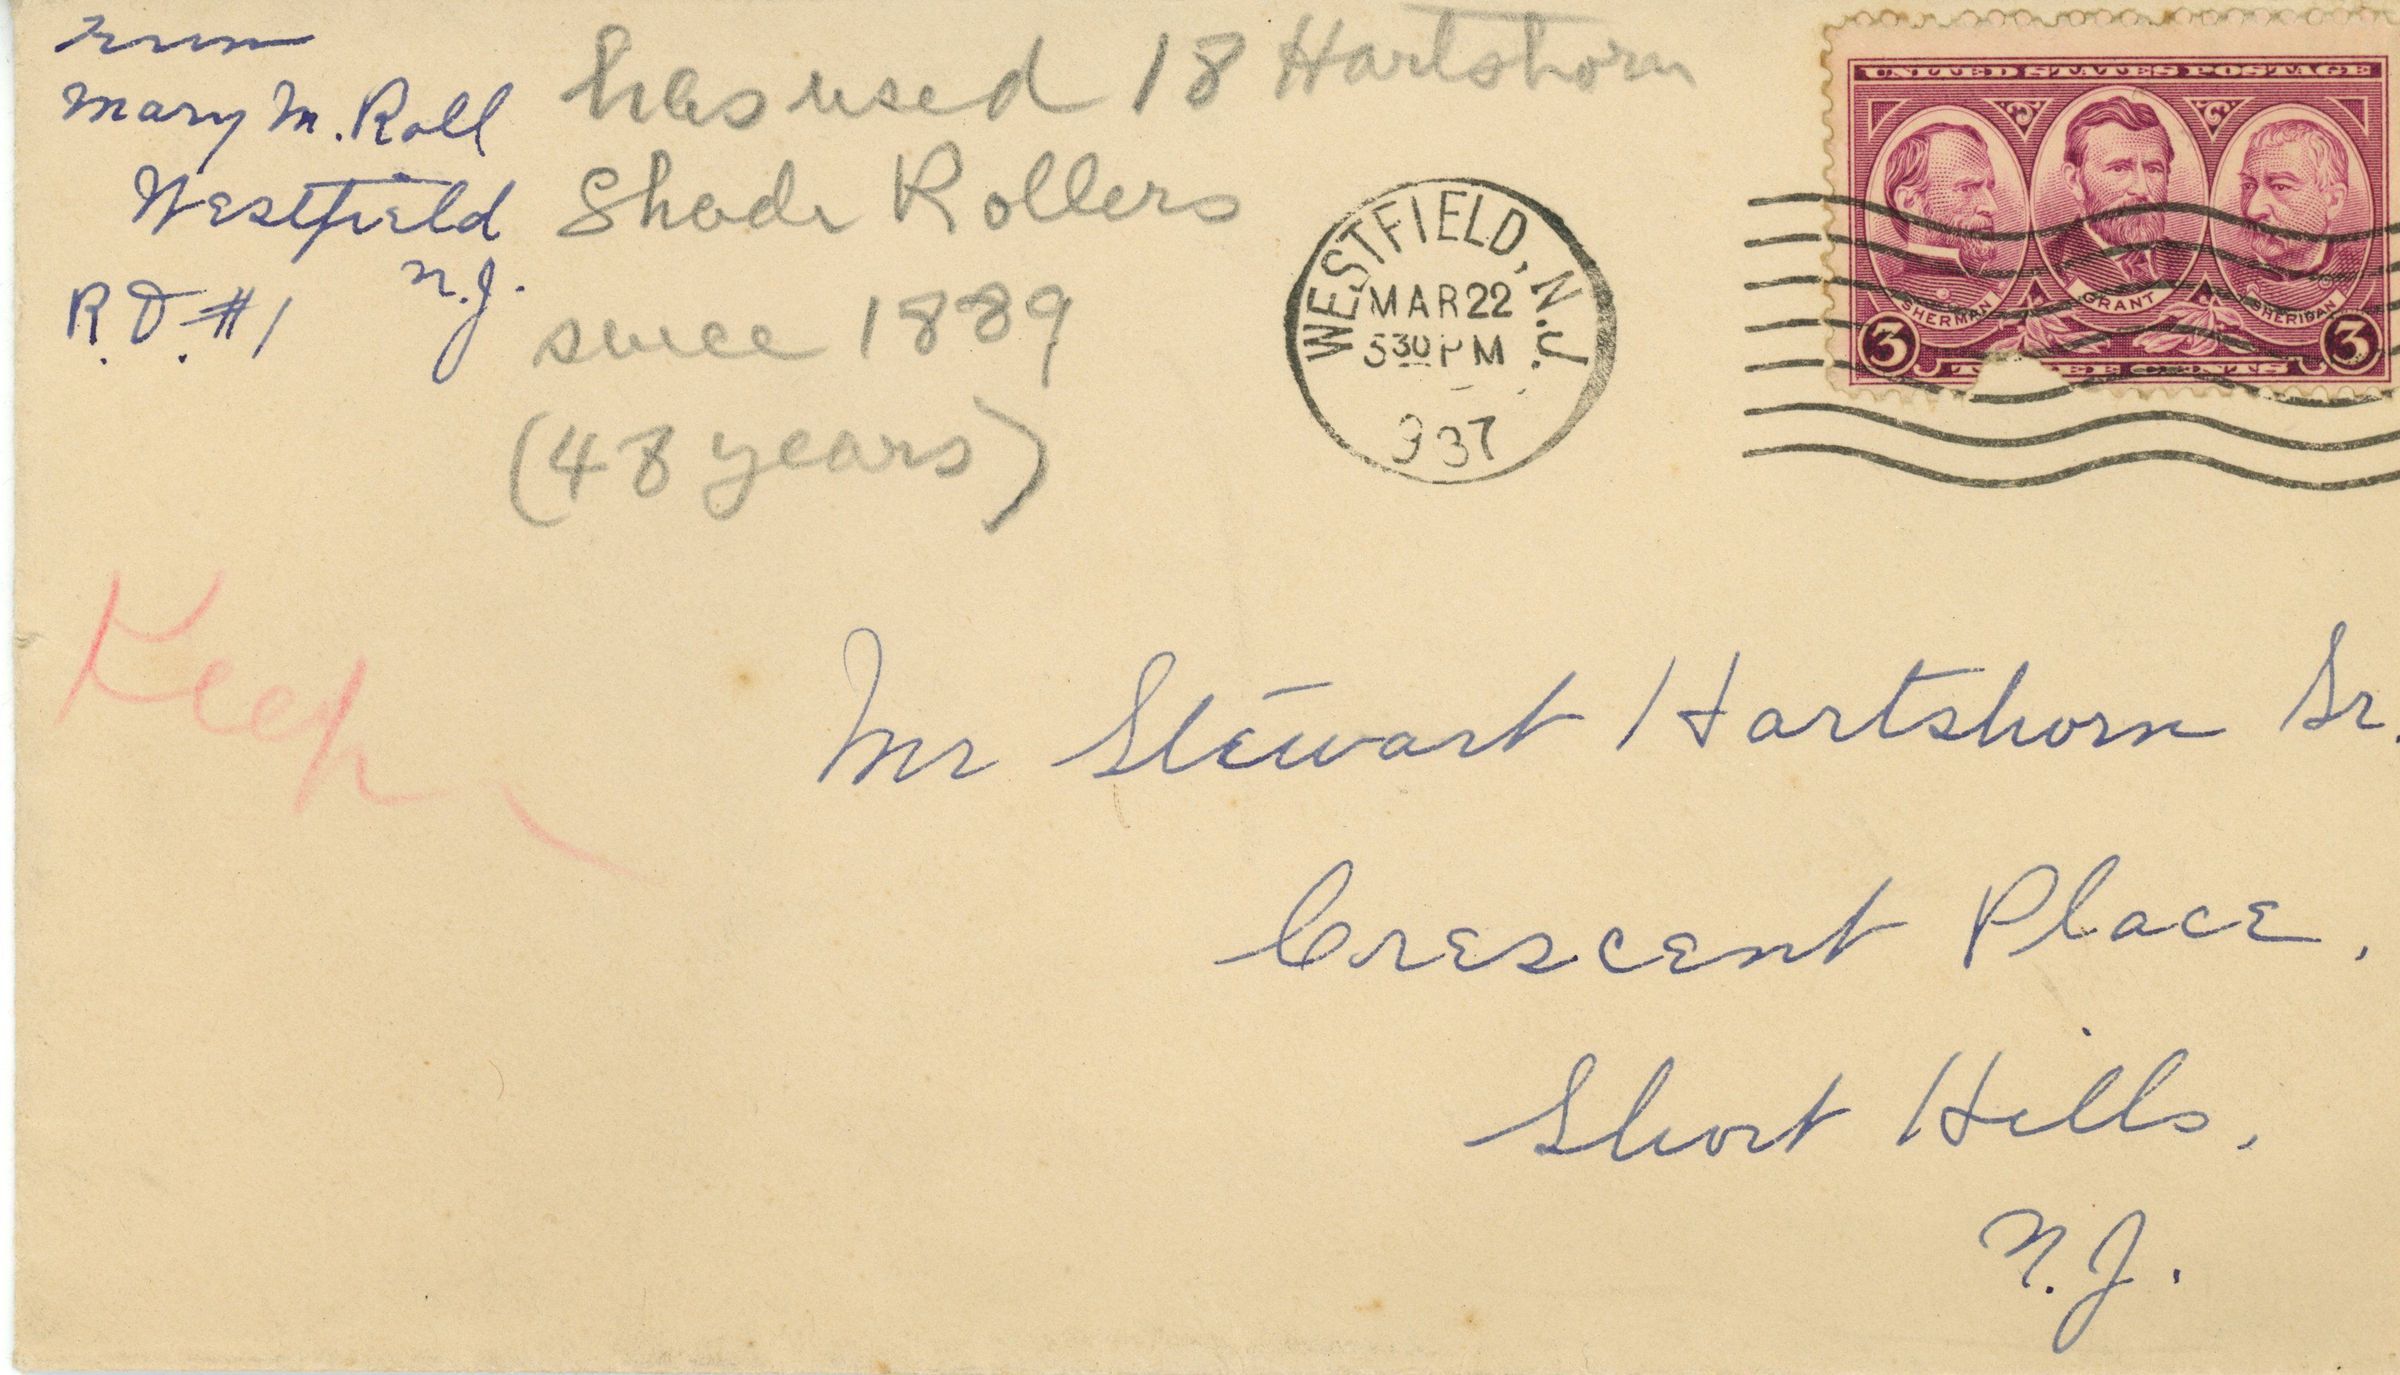 from
Mary M. Roll
Westfield
N.J.
R.D. #1
has used 18 Hartshorn
Shade Rollers
since 1889
(48 years)
WESTFIELD, N.J.
MAR 22
5 30 PM
937
UNITED STATES POSTAGE
SHERMAN
GRANT
SHERIDAN
3
3
CENTS
Keep
Mr Stewart Hartshorn Sr.
Crescent Place,
Short Hills,
N.J.